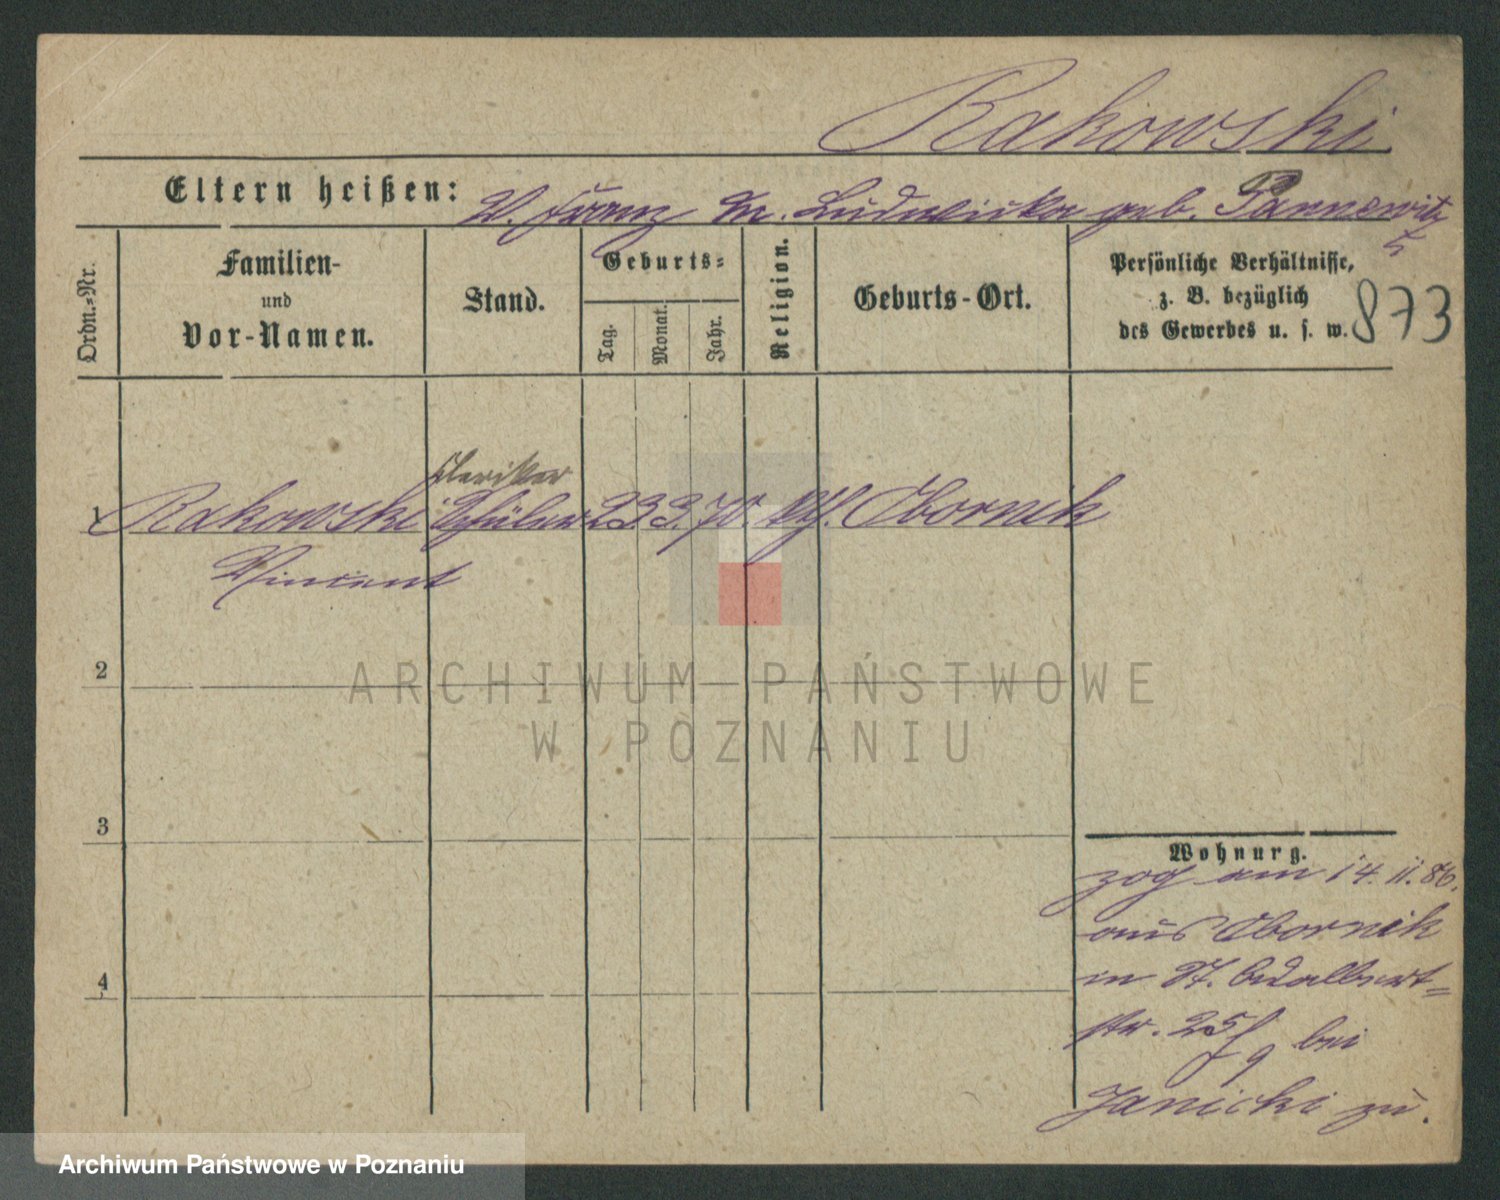 Rakowski
Eltern heißen: V. Franz M. Ludwicka geb. Pannewitz
Ordn.=Nr.
Familien-
und
Vor-Namen.
Stand.
Geburts=
Tag.
Monat.
Jahr.
Religion.
Geburts-Ort.
Persönliche Verhältnisse,
z. B. bezüglich
des Gewerbes u. s. w.
873
Kleriker
1 Rakowski Schüler 23 3. 70. kth. Obornik
Vincent
2
3
4
Wohnurg.
zog am 14. 11. 86.
aus Obornik
in St. Adalbert=
str. 25/ 9 bei
Janicki zu.
ARCHIWUM PAŃSTWOWE
W POZNANIU
Archiwum Państwowe w Poznaniu